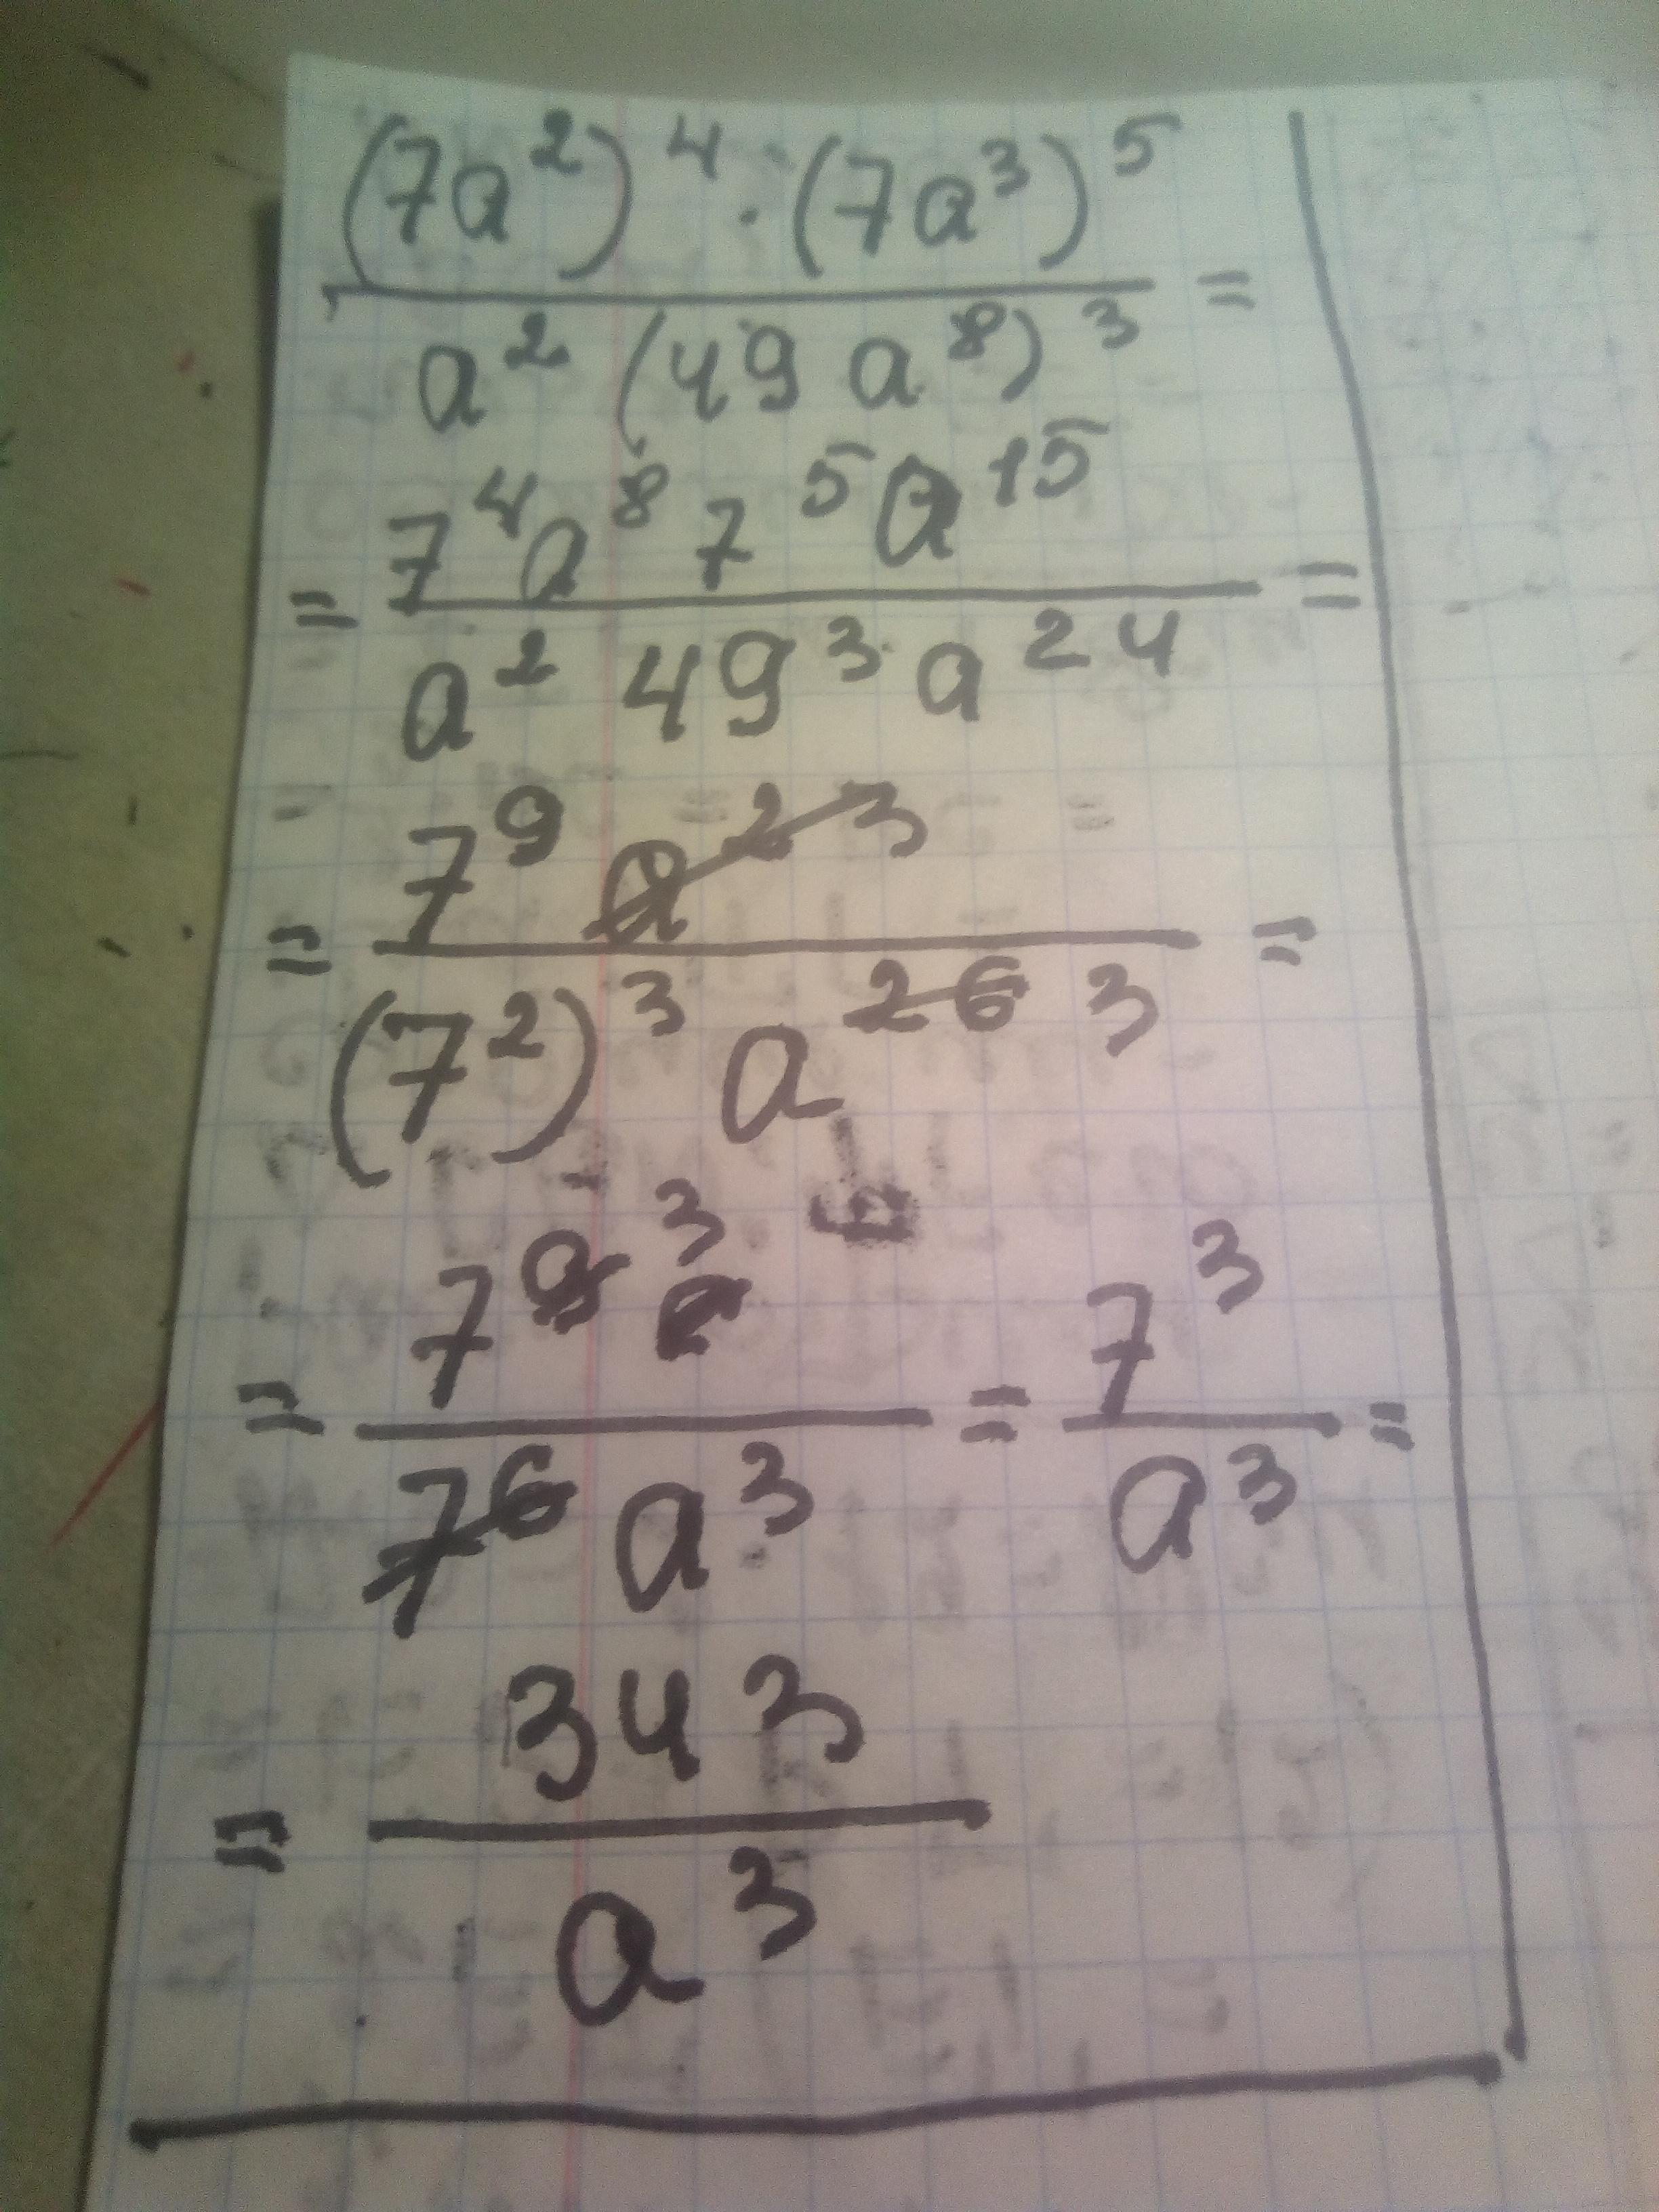 (7a²)⁴ · (7a³)⁵
=
a² (49 a⁸)³
7⁴a⁸ 7⁵a¹⁵
= =
a² 49³ a²⁴
7⁹ a²³
= =
(7²)³ a²⁶ 3
7⁹ 3 7³
= = =
7⁶ a³ a³
343
=
a³